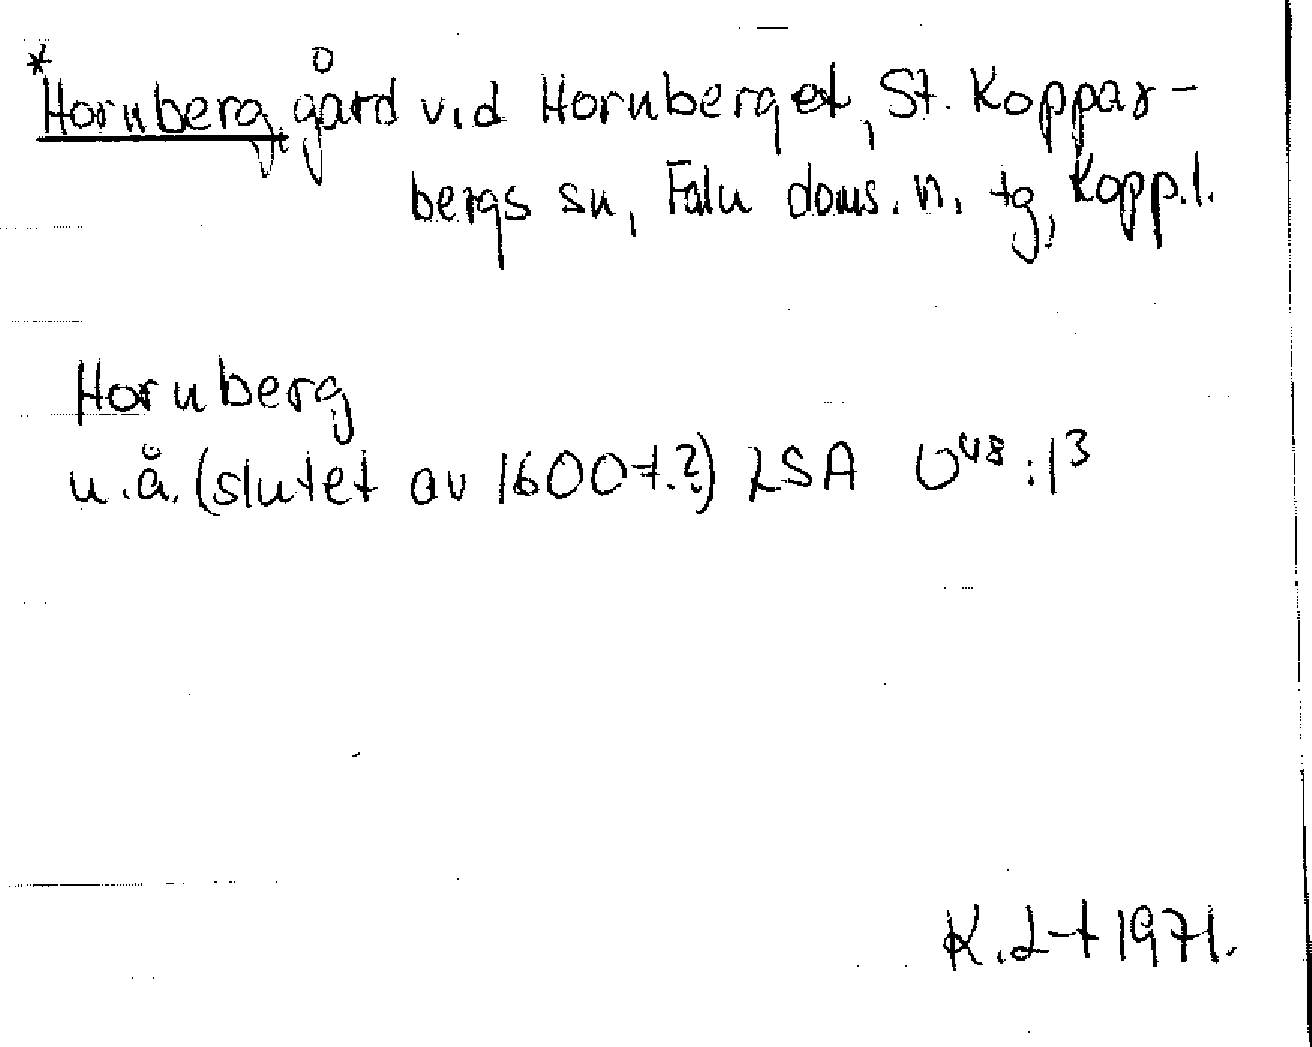 *Hornberg, gård vid Hornberget, St. Koppar-
bergs sn, Falu doms. n. tg, Kopp.l.
Hornberg
u.å. (slutet av 1600-t.?) LSA U48:13
K. L-t 1971.